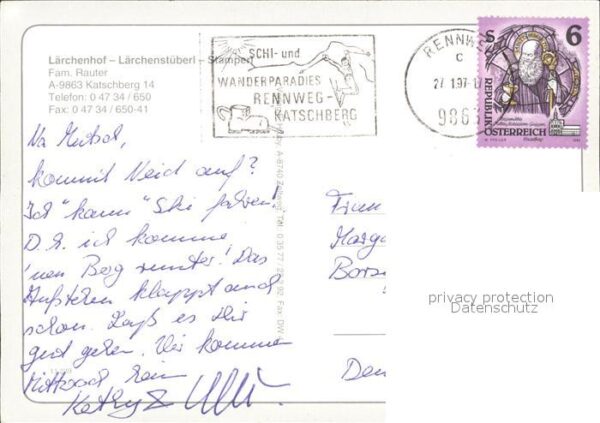 Lärchenhof – Lärchenstüberl – Stamperl
Fam. Rauter
A-9863 Katschberg 14
Telefon: 0 47 34 / 650
Fax: 0 47 34 / 650-41
SCHI- und
WANDERPARADIES
RENNWEG-
KATSCHBERG
RENNWE
c
27.1.97
986
S 6
REPUBLIK
ÖSTERREICH
Na
kommt Neid auf?
Ich "kann" Ski fahren!
D.h. ich komme
'nen Berg runter! Das
Aufstehen klappt auch
schon. Laß es Dir
gut gehen. Wir kommen
Mittwoch heim
Frau
Marga
privacy protection
Datenschutz